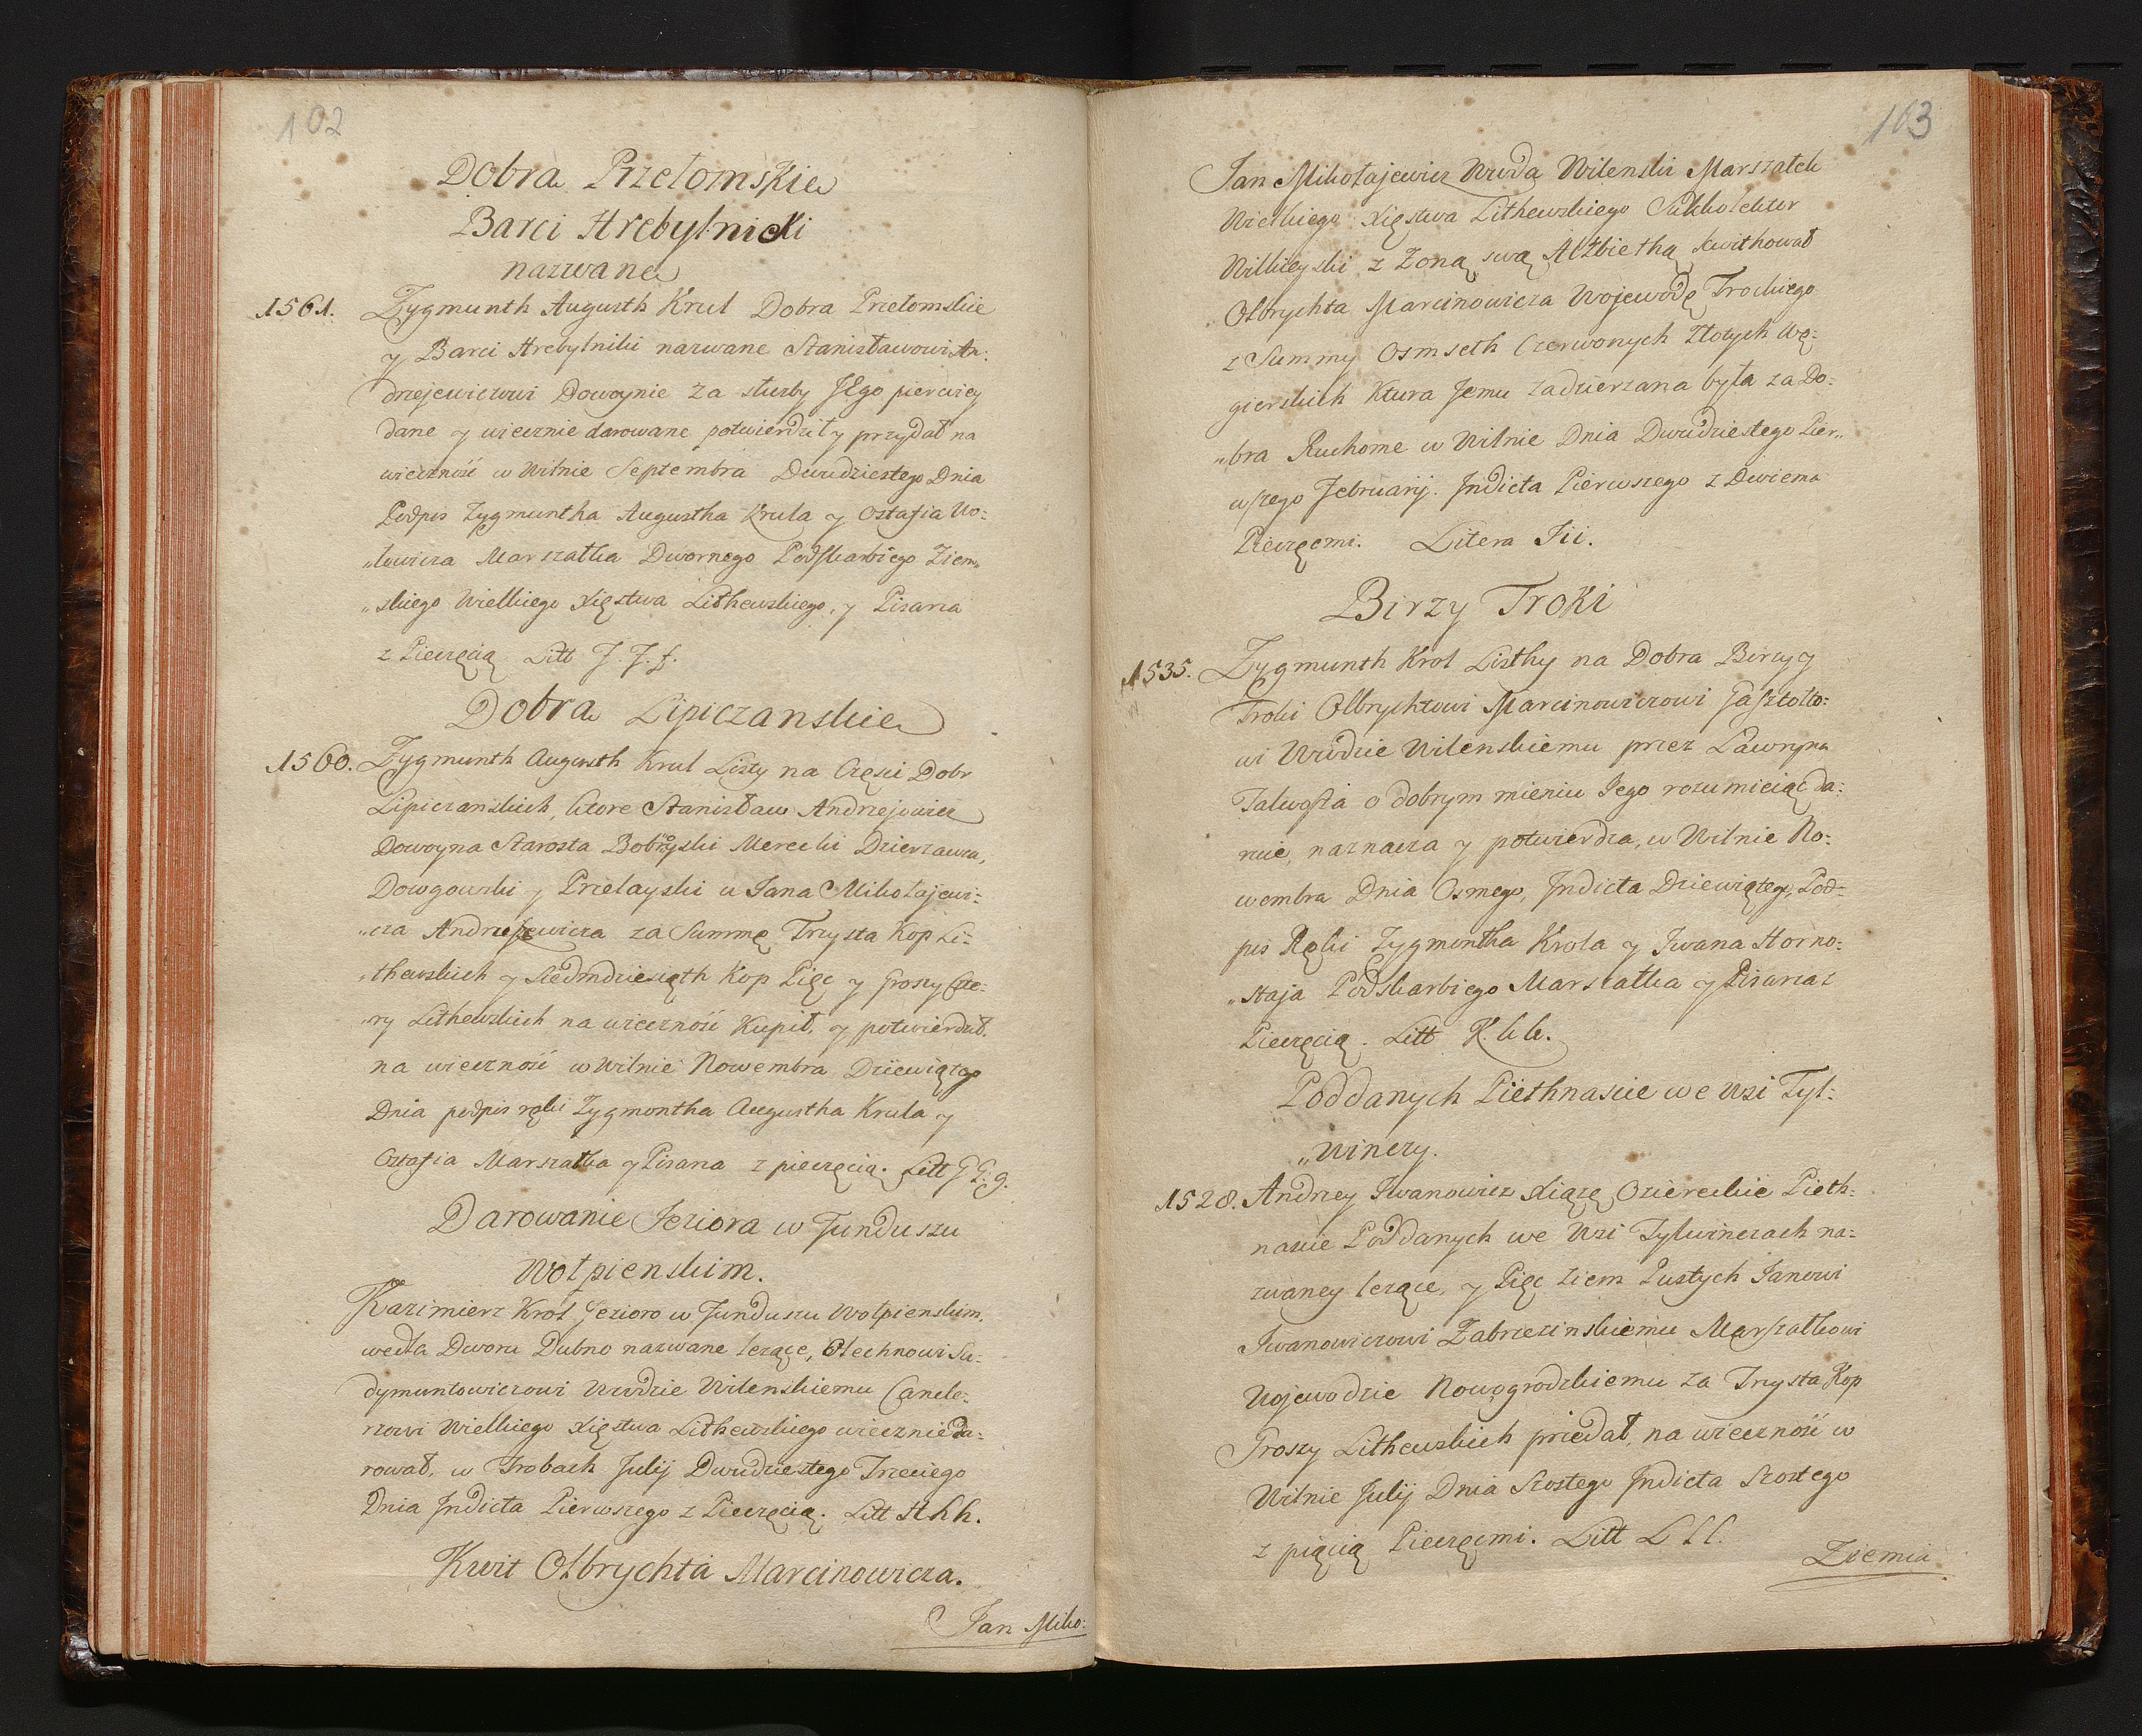 102
Dobra Przełomskie
Barci Hrebylnicki
nazwane
1561. Zygmunth Augusth Krul Dobra Przełomskie
y Barci Hrebylniki nazwane Stanisławowi An:
drzejewiczowi Dowoynie za służby JEgo pierwiey
dane y wiecznie darowane potwierdził y przydał na
wieczność w Wilnie Septembra Dwudziestego Dnia
Podpis Zygmuntha Augustha Krula y Ostafia Wo:
"łowicza Marszałka Dwornego Podskarbiego Ziem„
"skiego Wielkiego Xięstwa Lithewskiego, y Pisarza
z Pieczęcią Litt F. F. f.
Dobra Lipiczanskie
1560. Zygmunth Augusth Krul Listy na Częsci Dobr
Lipiczanskich, ktore Stanisław Andrzejowicz
Dowoyna Starosta Bobryski Merecki Dzierzawca,
Dowgowski y Przełayski u Jana Mikołajewi:
"cza Andrzeiewicza za Summę Trzysta Kop Li:
"thewskich y Siedmdziesiąth Kop Pięc y Groszy Czte:
"ry Lithewskich na wieczność Kupił, y potwierdził.
na wieczność w Wilnie Nowembra Dziewiątego
Dnia podpis ręki Zygmontha Augustha Krula y
Ostafia Marszałka y Pisarza z pieczęcią. Litt G G. g.
Darowanie Jeziora w Funduszu
Wołpienskim.
Kazimierz Król Jezioro w Funduszu Wołpienskim.
wedła Dworu Dubno nazwane leżące, Olechnowi Su:
dymuntowiczowi Wwdzie Wilenskiemu Cancle:
rzowi Wielkiego Xięstwa Lithewskiego wiecznie da:
rował, w Trobach Julij Dwudziestego Trzeciego
Dnia Jndicta Pierwszego z Pieczęcią. Litt H h h.
Kwit Olbrychta Marcinowicza.
Jan Miko:
103
Jan Mikołajewicz Wwda Wilenski Marszałek
Wielkiego Xięstwa Lithewskiego
Wilkieyski z Zoną swą Alżbiethą kwithował
Olbrychta Marcinowicza Wojewodę Trockiego
z Summy Osmseth Czerwonych Złotych Wę:
gierskich Ktura Jemu zadzierzana była za Do:
"bra Ruchome w Wilnie Dnia Dwudziestego Pier„
wszego Februarij. Jndicta Pierwszego z Dwiema
Pieczęcmi. Litera Iii.
Birzy Troki
1535. Zygmunth Krol Listhy na Dobra Birzy y
Troki Olbrychtowi Marcinowiczowi Gasztołto:
wi Wwdzie Wilenskiemu przez Ławryna
Talwosza o dobrym mieniu Jego rozumieiąc da:
ruie, naznacza y potwierdza, w Wilnie No:
wembra Dnia Osmego, Jndicta Dziewiątego, Pod:
pis Ręki Zygmontha Krola y Jwana Horno:
"staja Podskarbiego Marszałka y Pisarza z
Pieczęcią. Litt K. k k.
Poddanych Piethnascie we Wsi Tyl:
„Winczy.
1528. Andrzey Jwanowicz Xiąże Oziereckie Pieth:
nascie Poddanych we Wsi Tylwinczach na:
zwaney leżące, y Pięc Ziem Pustych Janowi
Jwanowiczowi Zabrzezinskiemu Marszałkowi
Wojewodzie Nowogrodzkiemu za Trzysta Kop
Groszy Lithewskich przedał, na wieczność w
Wilnie Julij Dnia Szostego Jndicta Szostego
z pięcią Pieczęcmi. Litt L l l.
Ziemia